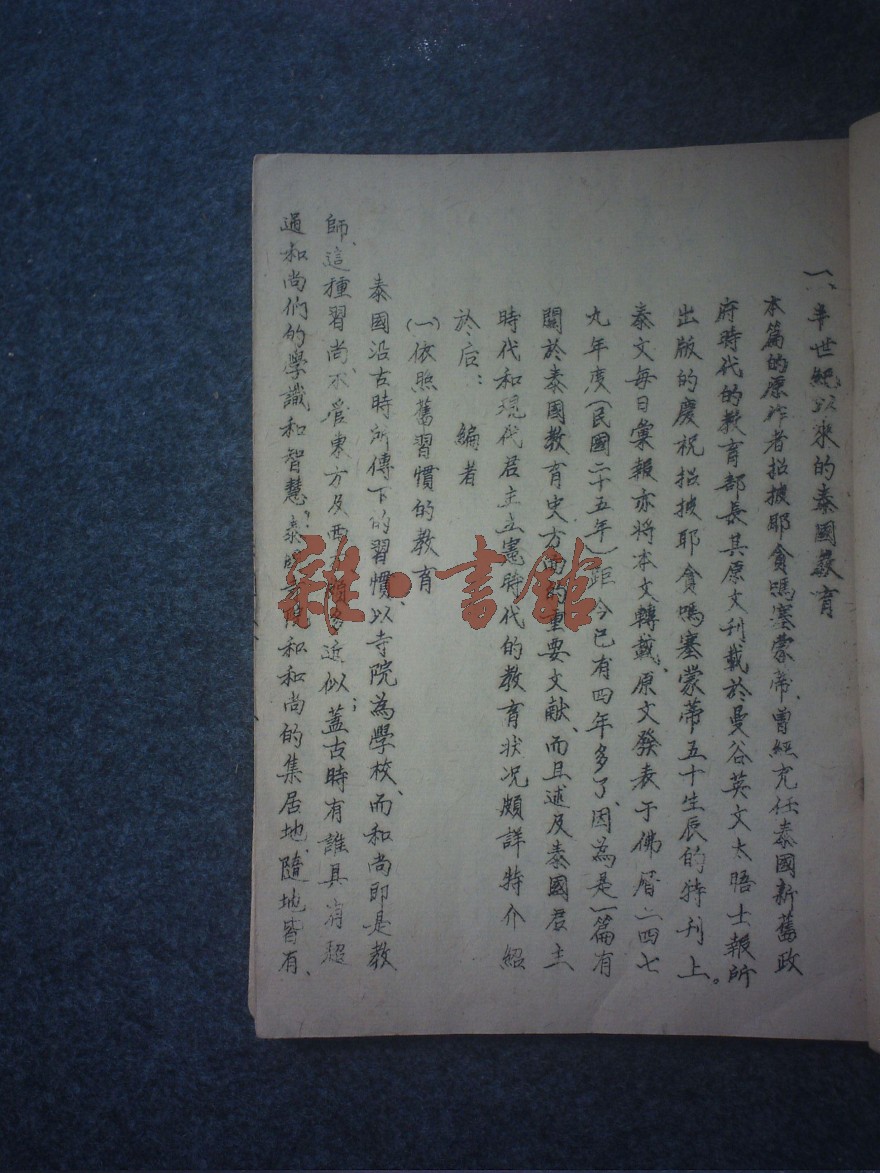 一、半世紀以來的泰國教育
本篇的原作者招披耶貪嗎塞蒙蒂、曾經充任泰國新舊政
府時代的教育部長其原文刊載於曼谷英文太晤士報所
出版的慶祝招披耶貪嗎塞蒙蒂五十生辰的特刊上。
泰文每日彙報亦將本文轉載、原文發表于佛曆二四七
九年度(民國二十五年)距今已有四年多了、因為是一篇有
關於泰國教育史方面的重要文献、而且述及泰國君主
時代和現代君主立憲時代的教育狀況頗詳特介紹
於后：　編者
(一)依照舊習慣的教育
泰國沿古時所傳下的習慣、以寺院為學校、而和尚即是教
師、這種習尚、不管東方及西方近似；蓋古時有誰具有超
過和尚們的學識和智慧？泰的和和尚的集居地、隨地皆有、
雜·書館